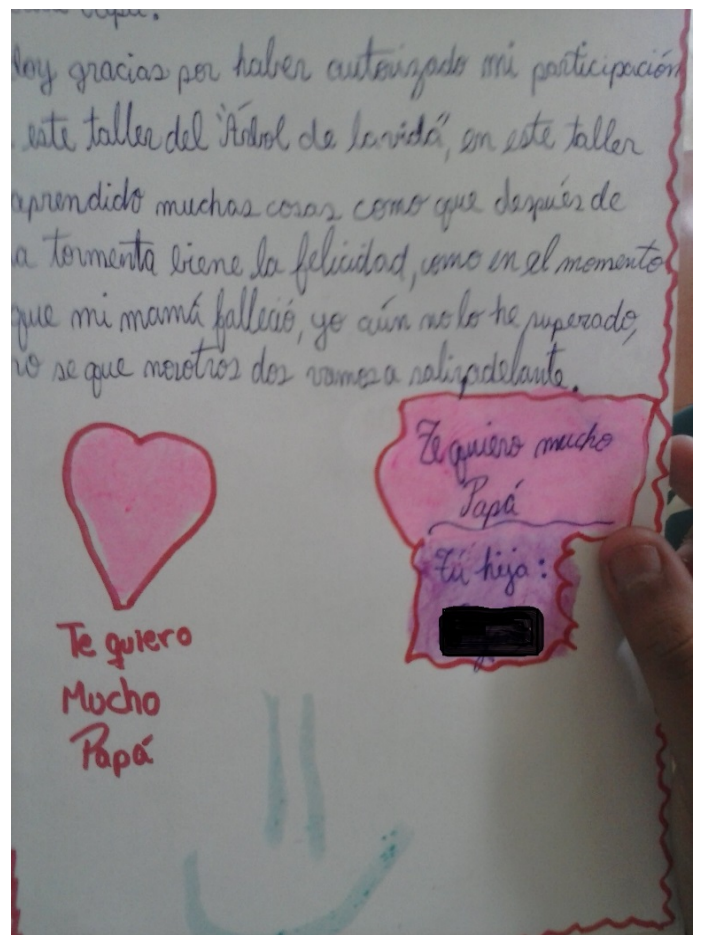 loy gracias por haber autorizado mi participación
este taller del "Árbol de la vida", en este taller
aprendido muchas cosas como que después de
a tormenta biene la felicidad, como en el momento
que mi mamá falleció, yo aún no lo he superado,
ro se que nosotros dos vamos a salir adelante.
Te quiero mucho
Papá
Tú hija:
Te quiero
Mucho
Papá